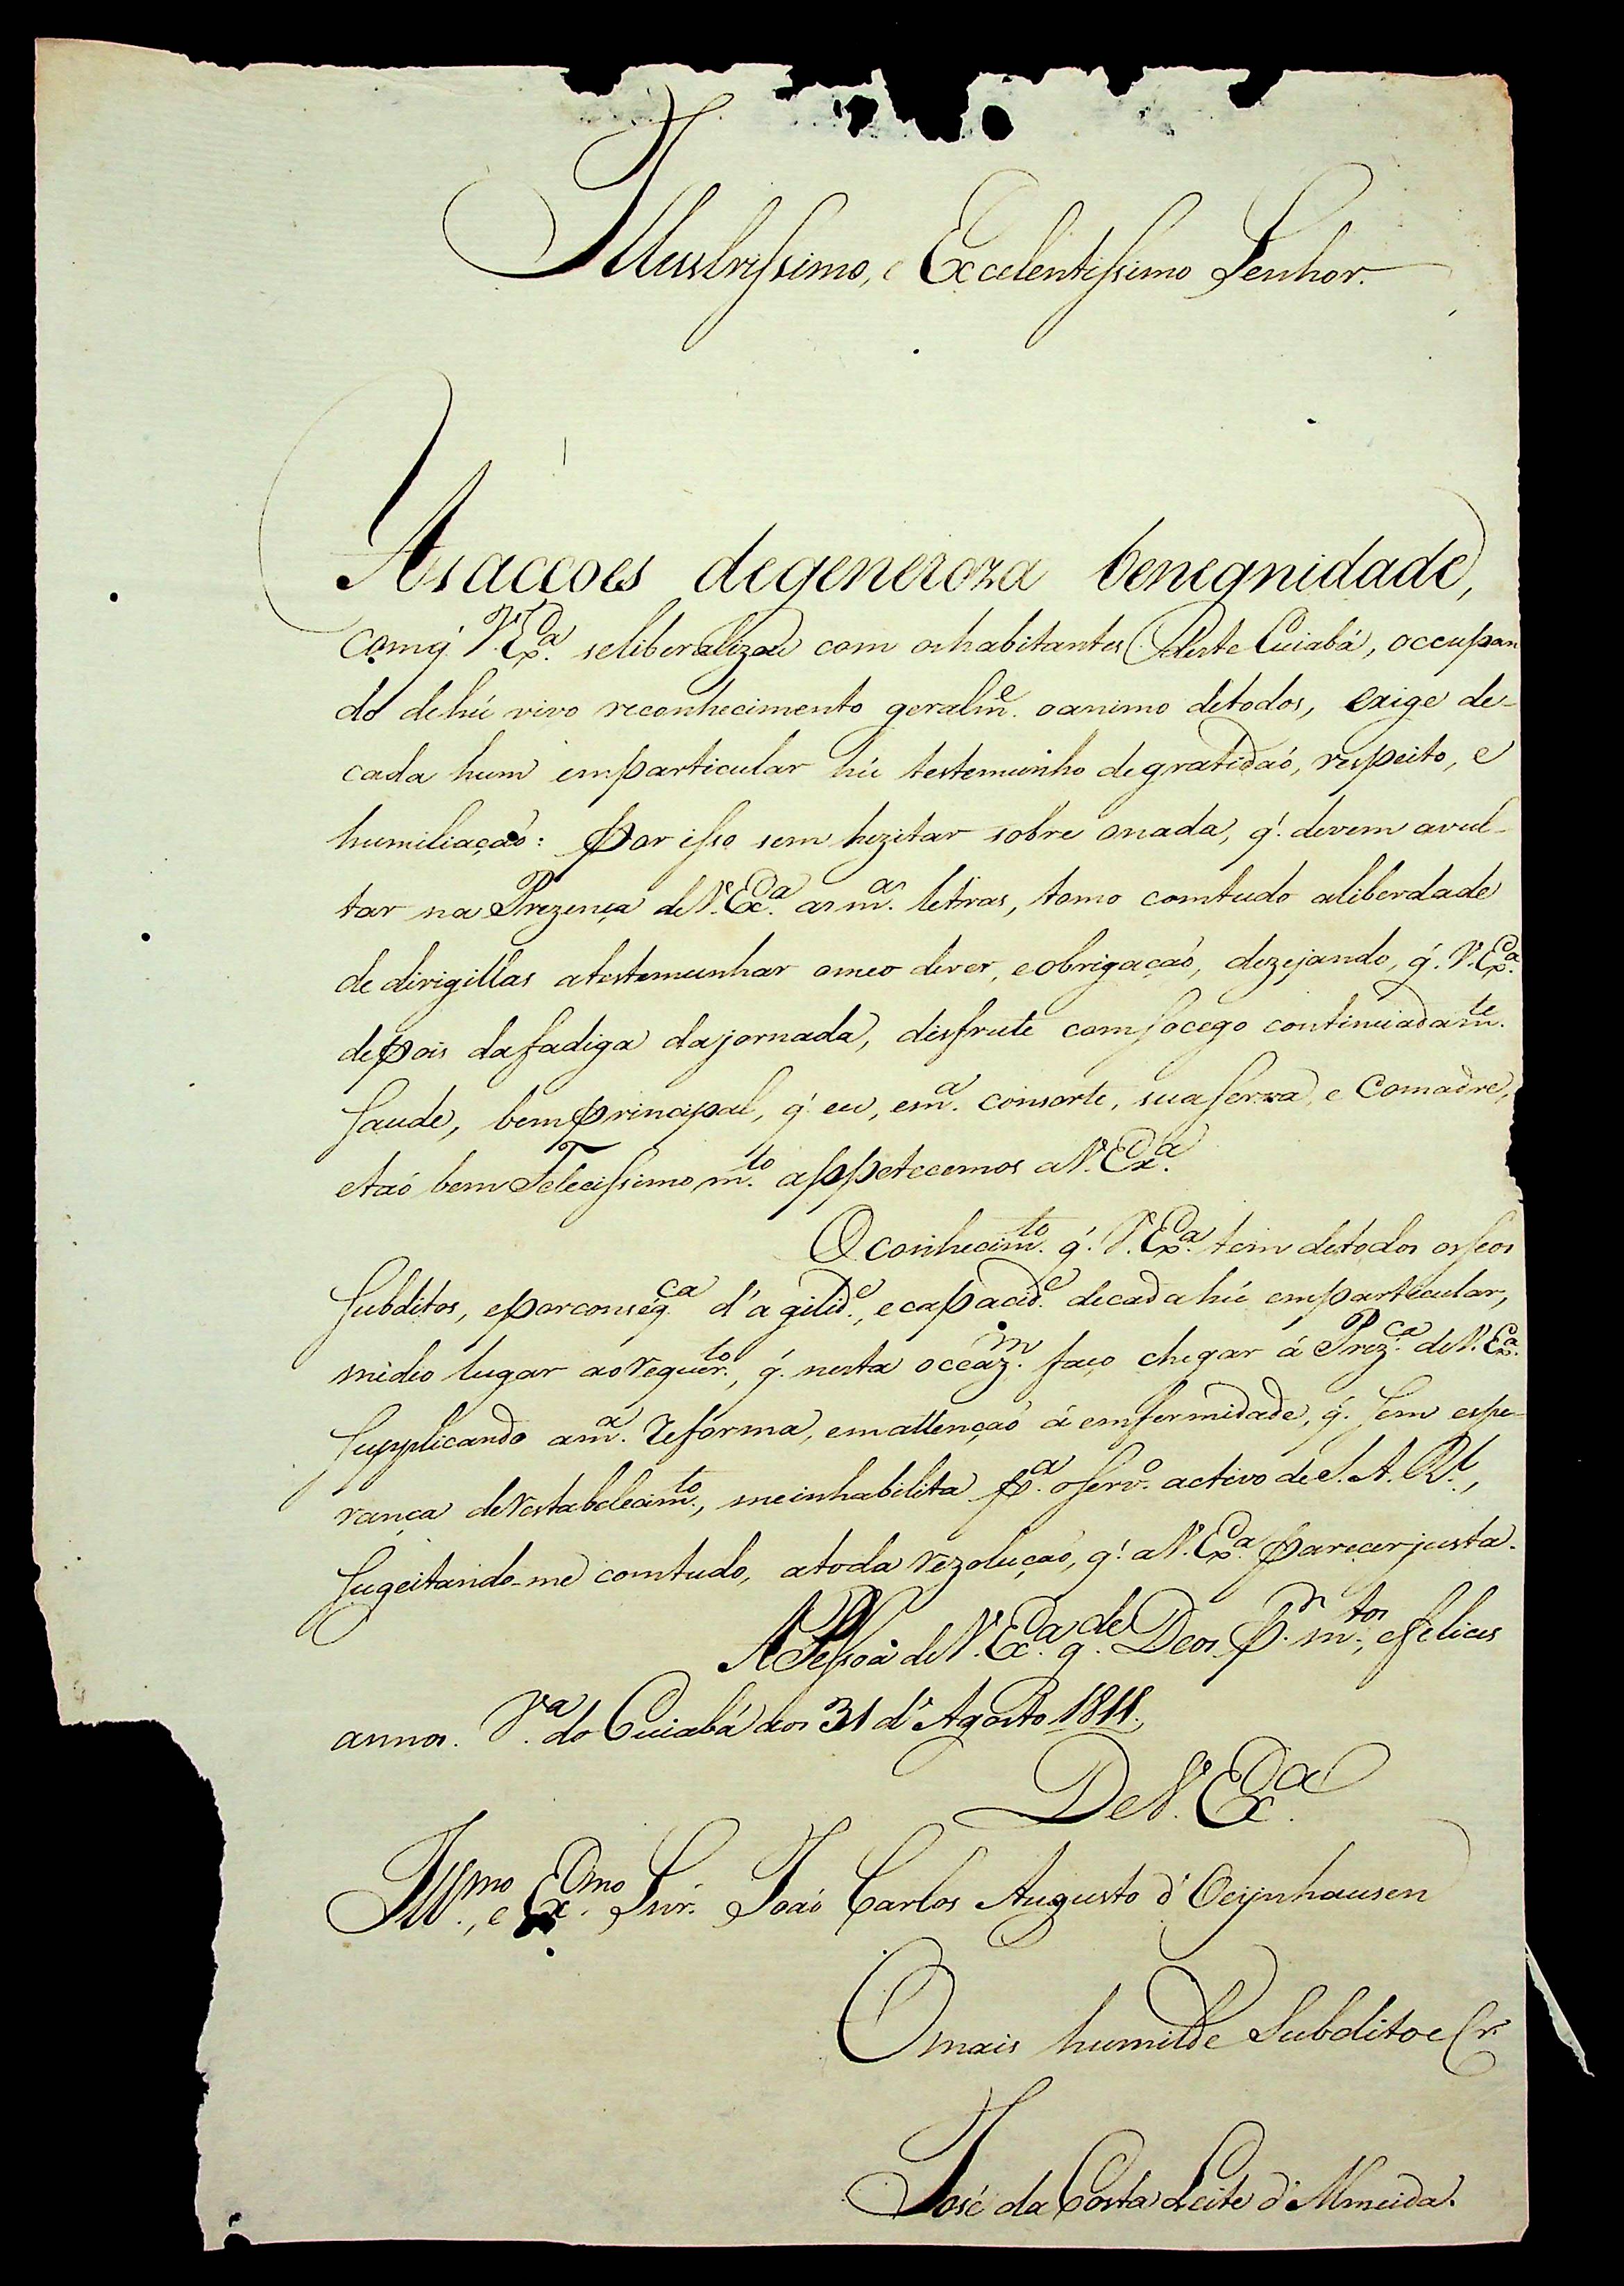 Illustrissimo, e Excelentissimo Senhor.
As accoes degeneroza benegnidade,
comq̃ V. Ex.ª seliberalizou com oshabitantes deste Cuiabá, occupan
do dehũ vivo reconhecimento geralm.e oanimo detodos, exige de-
cada hum emparticular hũ testemunho degratidaõ, respeito, e
humiliaçaõ: por isso sem hezitar sobre onada, q̃. devem avul-
tar na Prezença deV. Ex.ª as m.as letras, tomo comtudo aliberdade
de dirigillas atestemunhar omeo dever, eobrigaçaõ, dezejando, q̃. V. Ex.ª
depois dafadiga dajornada, disfrute comsocego continuadam.te
saude, bem principal, q̃. eu, em.ª consorte, suaserva, e Comadre,
etaõ bem Felecissimo m.to appetecemos aV. Ex.ª
Oconhecim.to q̃. V. Ex.ª tem detodos osseos
subditos, eporconseq.ca d'agilid.e, ecapacid.e decadahũ emparticular,
medeo lugar aoRequer.to, q̃. nesta occaz.m faço chegar á Prez.ca deV. Ex.ª
supplicando am.ª Refórma, emattençaõ á emfermidade, q̃. sem espe-
rança deRestabelecim.to, meinhabilita p.ª oserv.o activo de S. A. R.l,
sugeitando-me comtudo, atoda Rezoluçaõ, q̃. aV. Ex.ª parecer justa.
APessoa deV. Ex.ª g.de Deos p.r m.tos, efelices
annos. V.ª do Cuiabá aos 31 d'Agosto 1811.
DeV. Ex.ª
Ill.mo, e Ex.mo Snr. Joaõ Carlos Augusto d'Oeynhausen
Omais humilde Subdito e Cr.
José da Costa Leite d'Almeida.